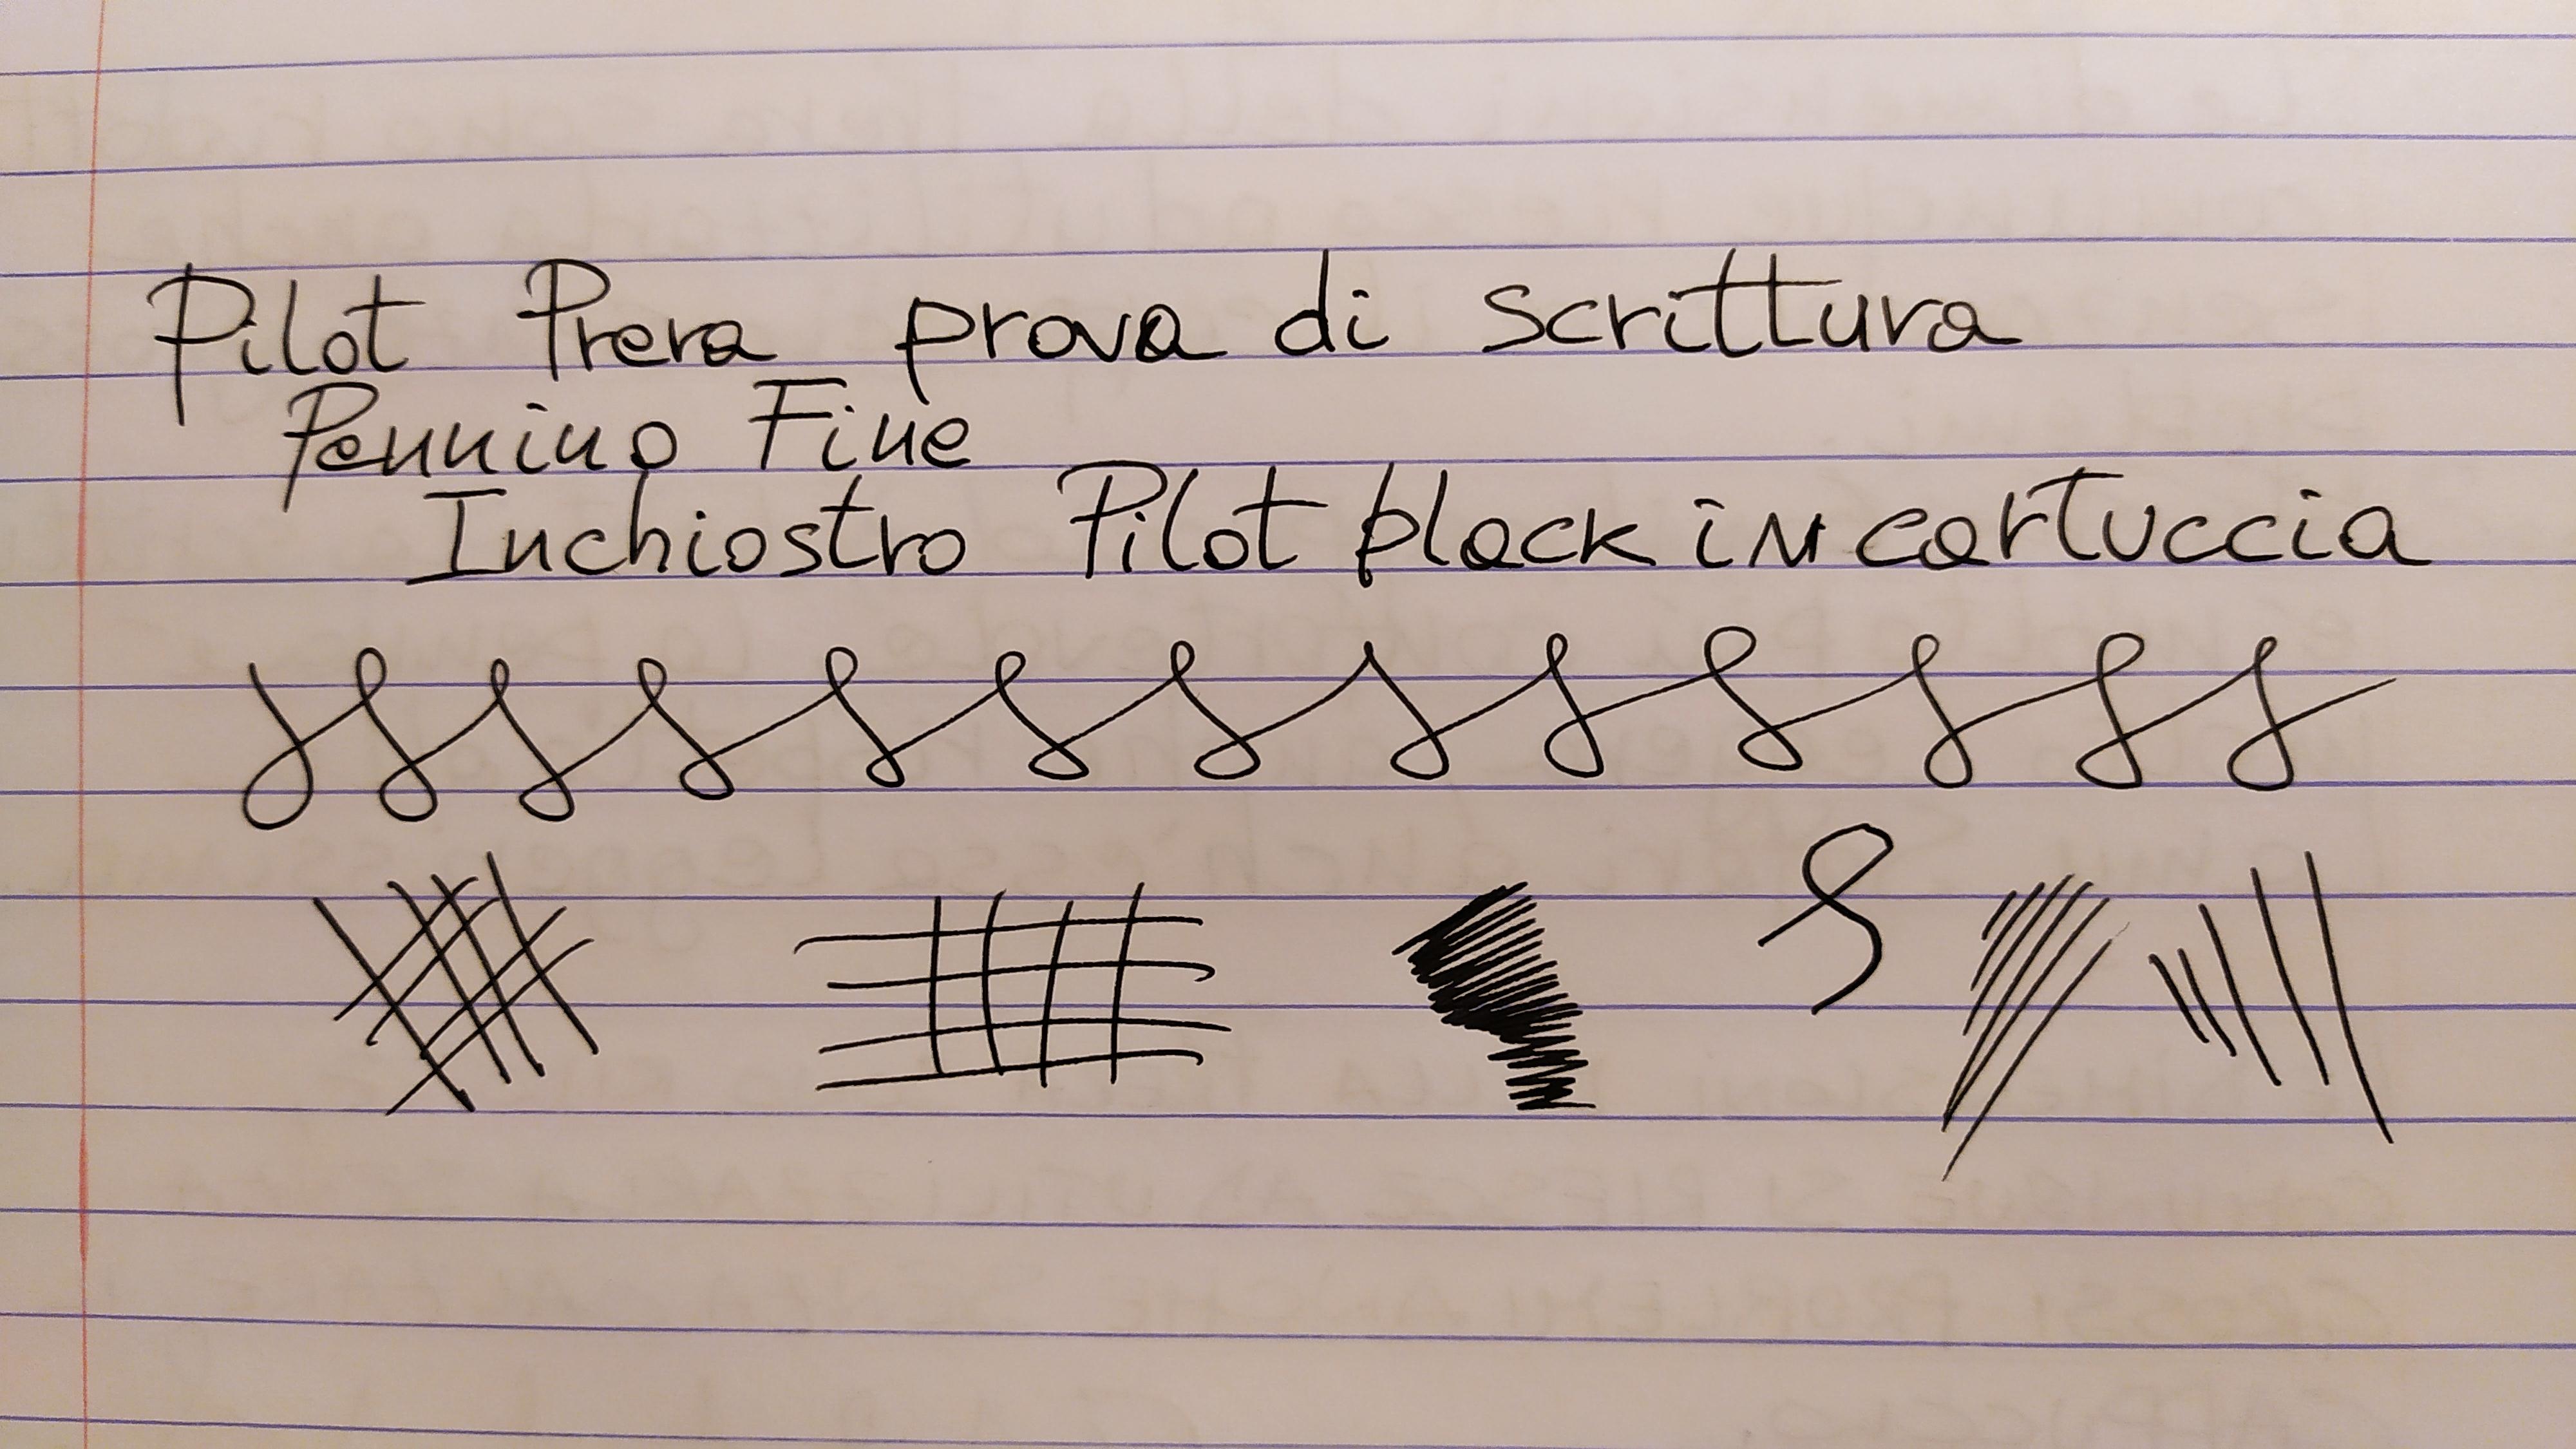 Pilot Prera prova di scrittura
Pennino Fine
Inchiostro Pilot black in cartuccia